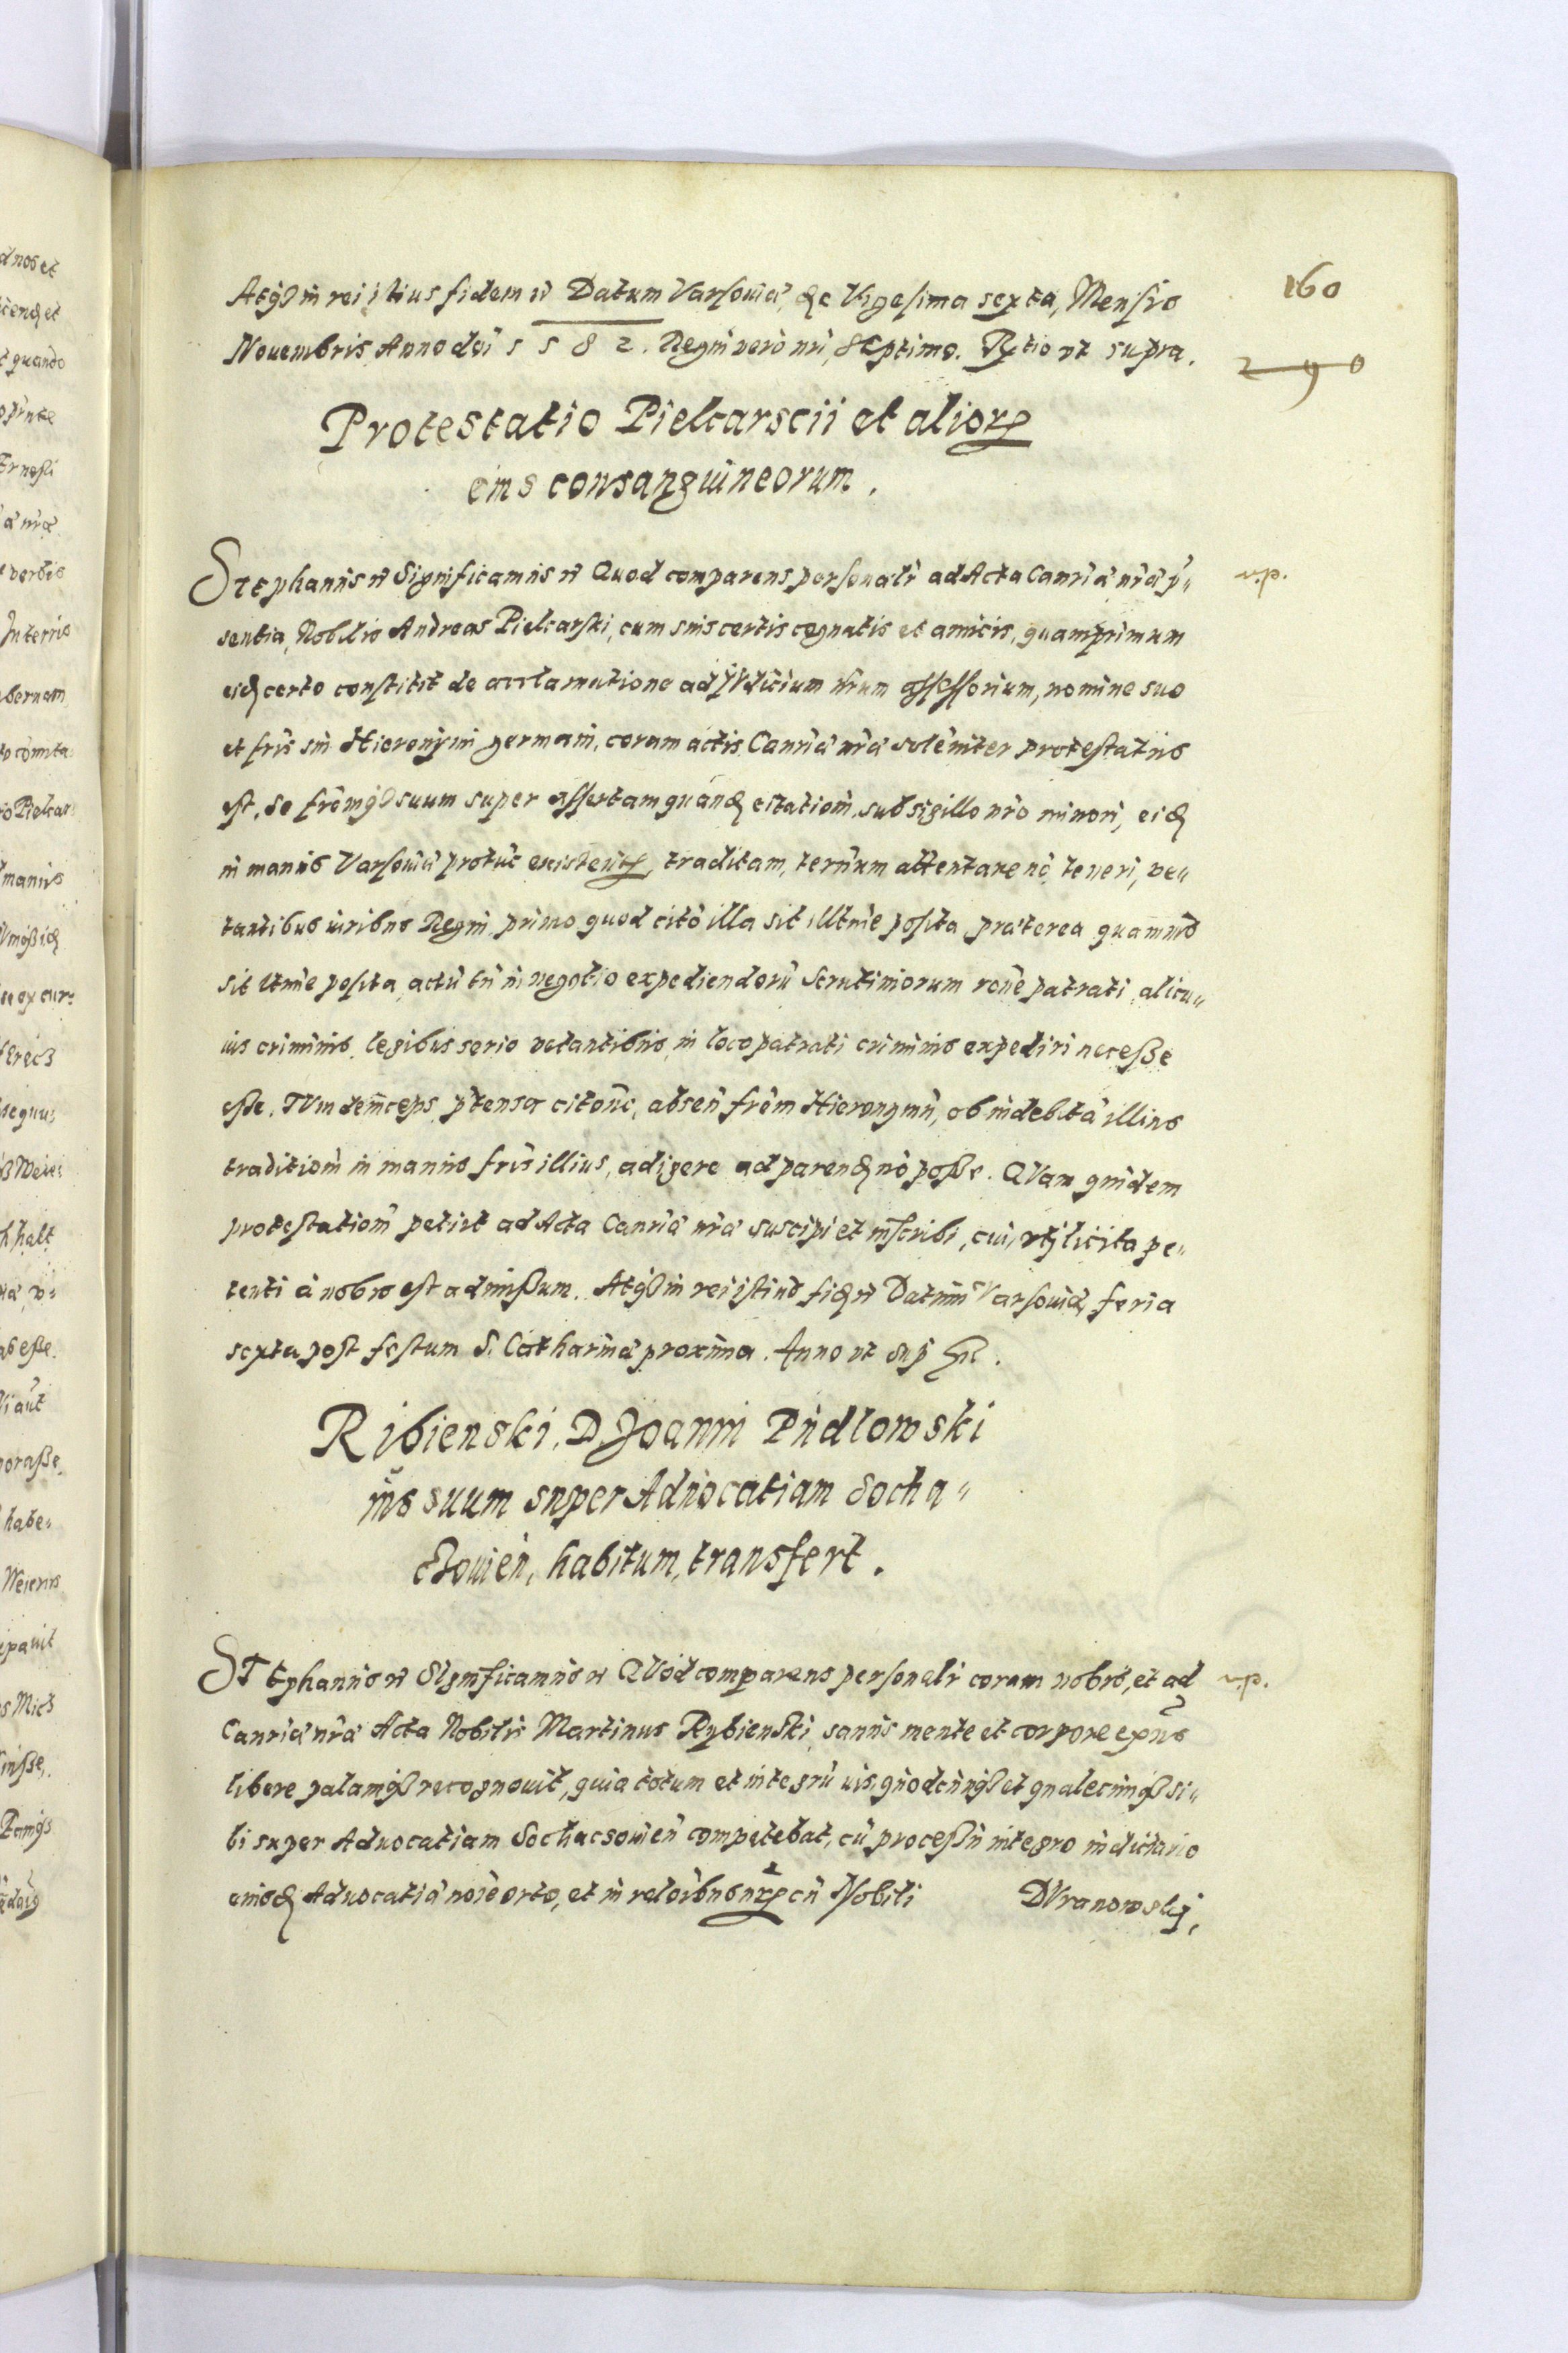 160
Atqꝫ in rei istius fidem ꝛc Datum Varsouiæ, die Vigesima sexta, Mensis
Nouembris Anno dni 1582. Regni vero nri, Septimo. Rltio vt supra.
290
Protestatio Piekarscii et alioꝝ
eius consanguineorum.
v.p.
Stephanus ꝛc Significamus ꝛc Quod comparens personalr ad Acta Canriæ nræ p̃„
sentia, Nobilis Andreas Piekarski, cum suis certis cognatis et amicis, quamprimum
eidē certo constitit de acclamatione ad Judicium nrum assessorium, nomine suo
et fris sui Hieronymi germani, coram actis Canriæ nræ solēniter protestatus
est, se frēmqꝫ suum super assertam quandā citationē, sub sigillo nro minori, eidē
in manus Varsouiæ protūc existentꝫ, traditam, termium attentare nō teneri, ve„
tantibus iuribus Regni, primo quod citō illa sit illtme posita, præterea quamuis
sit ltime posita, actū tn̄ in negotio expediendorū Scrutiniorum rōne patrati alicu„
ius criminis, legibus serio vetantibus, in loco patrati criminis expediri necesse
esse. Tum deinceps p̃tensæ citōnē, absen̄ frēm Hieronymū, ob indebitā illius
traditionē in manus fris illius, adigere ad parendū nō posse. Quam quidem
protestationē petiit ad Acta Canriæ nræ suscipi et inscribi, cui, vtj licita pe„
tenti à nobis est admissum. Atqꝫ in rei istius fidē ꝛc Datum Varsouiæ, feria
sexta post festum S. Catharinæ proxima. Anno vt sup̄
Ribienski, D. Joanni Pudlowski
ius suum super Aduocatiam Socha„
czouien̄, habitum, transfert.
v.p.
Stephanus ꝛc Significamus ꝛc Quod comparens personalr coram nobis, et ad
Canriæ nræ Acta Nobilis Martinus Rybienski, sanus mente et corpore exn̄s
libere palamqꝫ recognouit, quia totum et integrū ius, quodcunqꝫ et qualecunqꝫ si„
bi super Aduocatiam Sochacsouien̄ competebat, cū processu integro iudiciario
eiusdē Aduocatiæ noīe orto, et in relōibus nrꝝ cū Nobili Duranowskj,